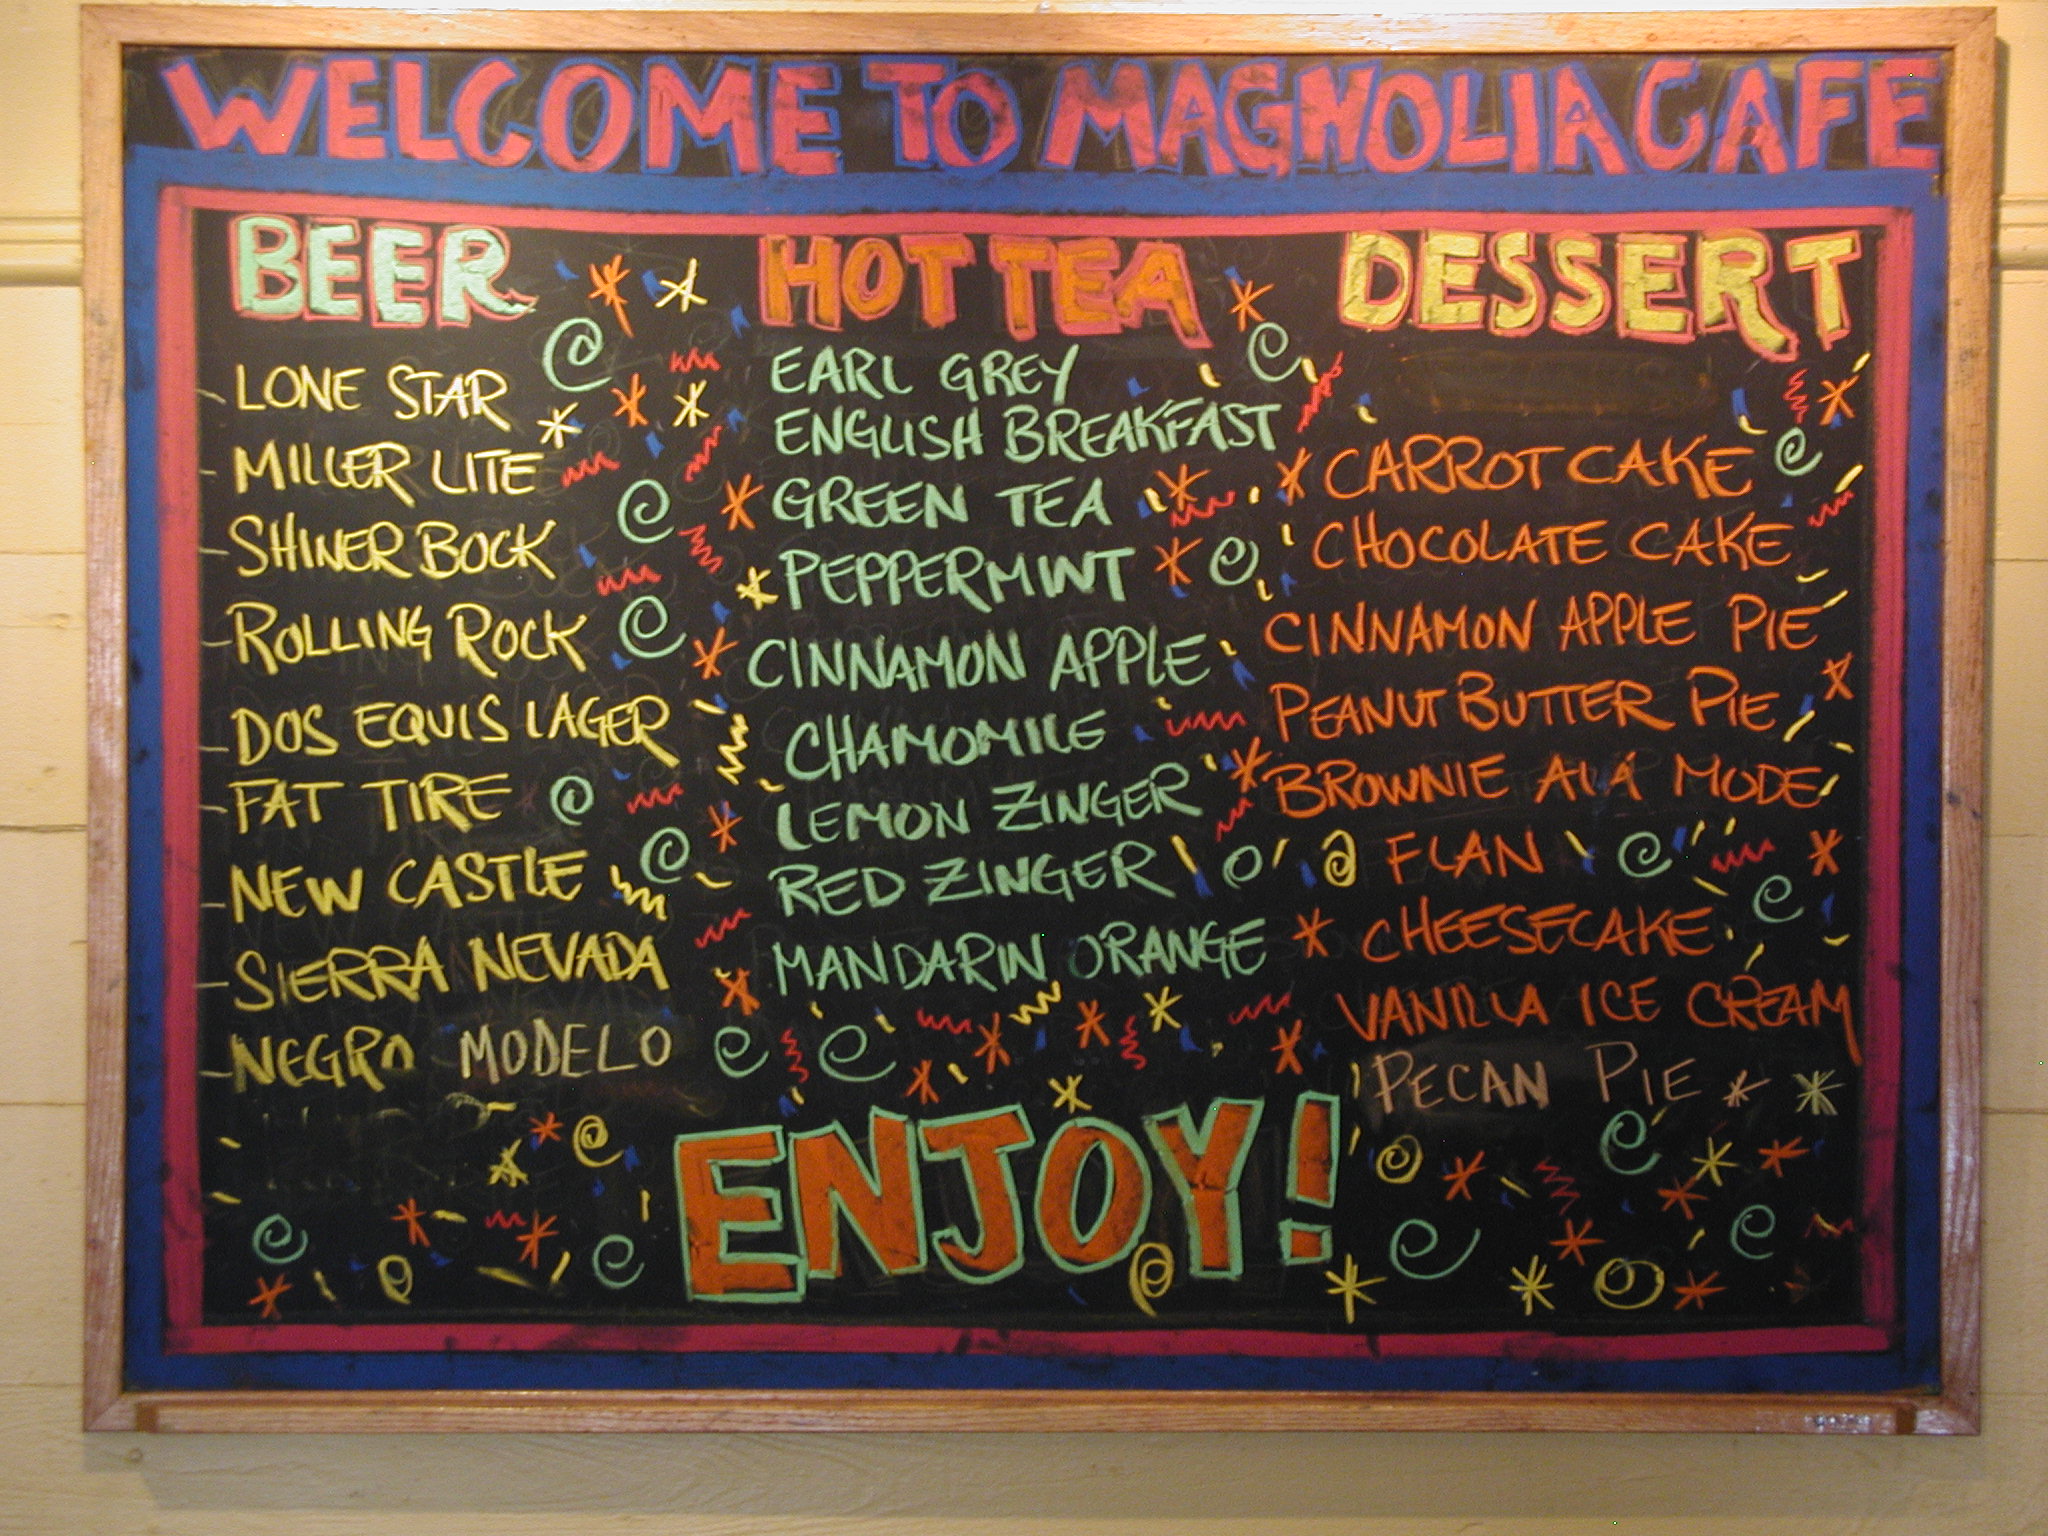 WELCOME TO MAGNOLIA CAFE
BEER
LONE STAR
MILLER LITE
SHINER BOCK
ROLLING ROCK
DOS EQUIS LAGER
FAT TIRE
NEW CASTLE
SIERRA NEVADA
NEGRO MODELO
HOT TEA
EARL GREY
ENGLISH BREAKFAST
GREEN TEA
PEPPERMINT
CINNAMON APPLE
CHAMOMILE
LEMON ZINGER
RED ZINGER
MANDARIN ORANGE
DESSERT
CARROT CAKE
CHOCOLATE CAKE
CINNAMON APPLE PIE
PEANUT BUTTER PIE
BROWNIE ALA MODE
FLAN
CHEESECAKE
VANILLA ICE CREAM
PECAN PIE
ENJOY!